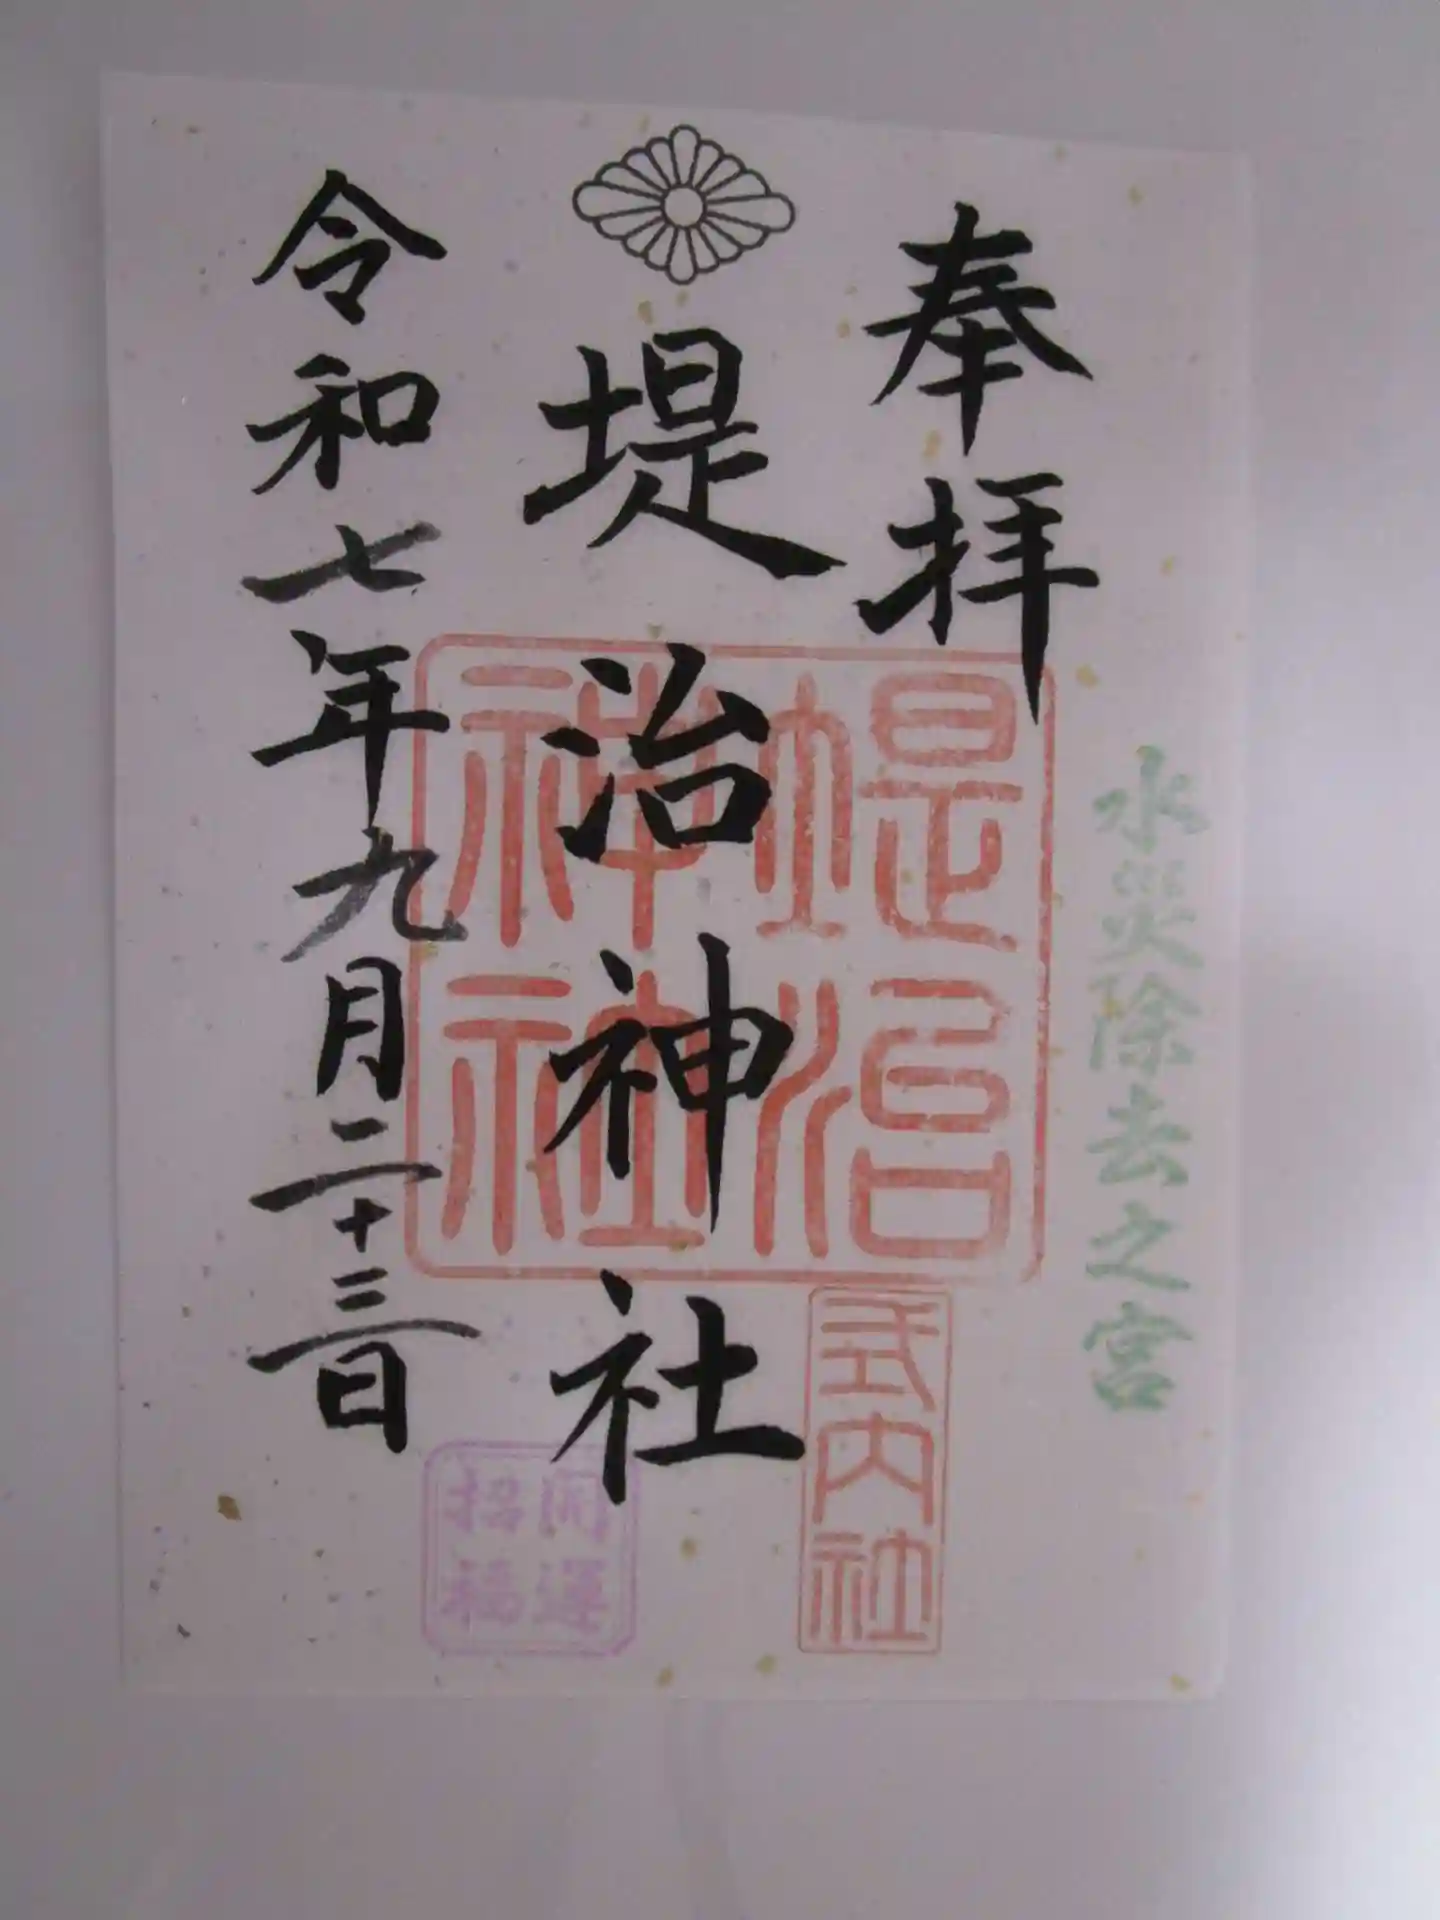 奉拝
水災除去之宮
堤治神社
堤治
神社
式内社
開運
招福
令和七年九月二十三日